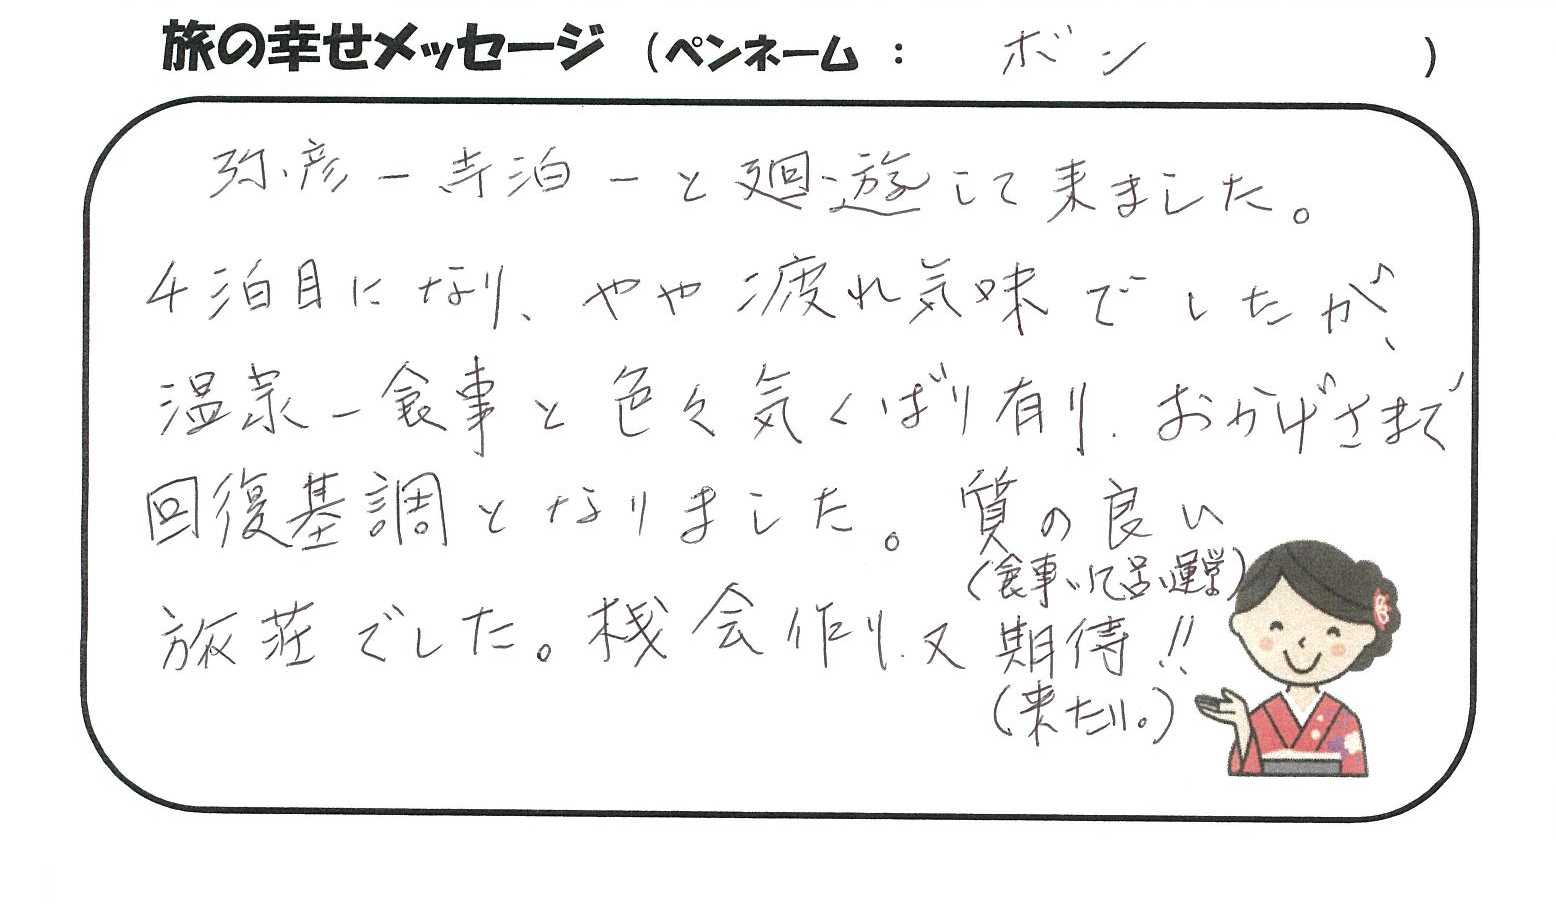 旅の幸せメッセージ (ペンネーム : ボン )
弥彦ー寺泊ーと廻遊して来ました。
4泊目になり、やや疲れ気味でしたが、
温泉ー食事と色々気くばり有り、おかげさまで
回復基調となりました。質の良い
(食事いて呂い運営)
旅荘でした。機会作り、又期待!!
(来たい。)